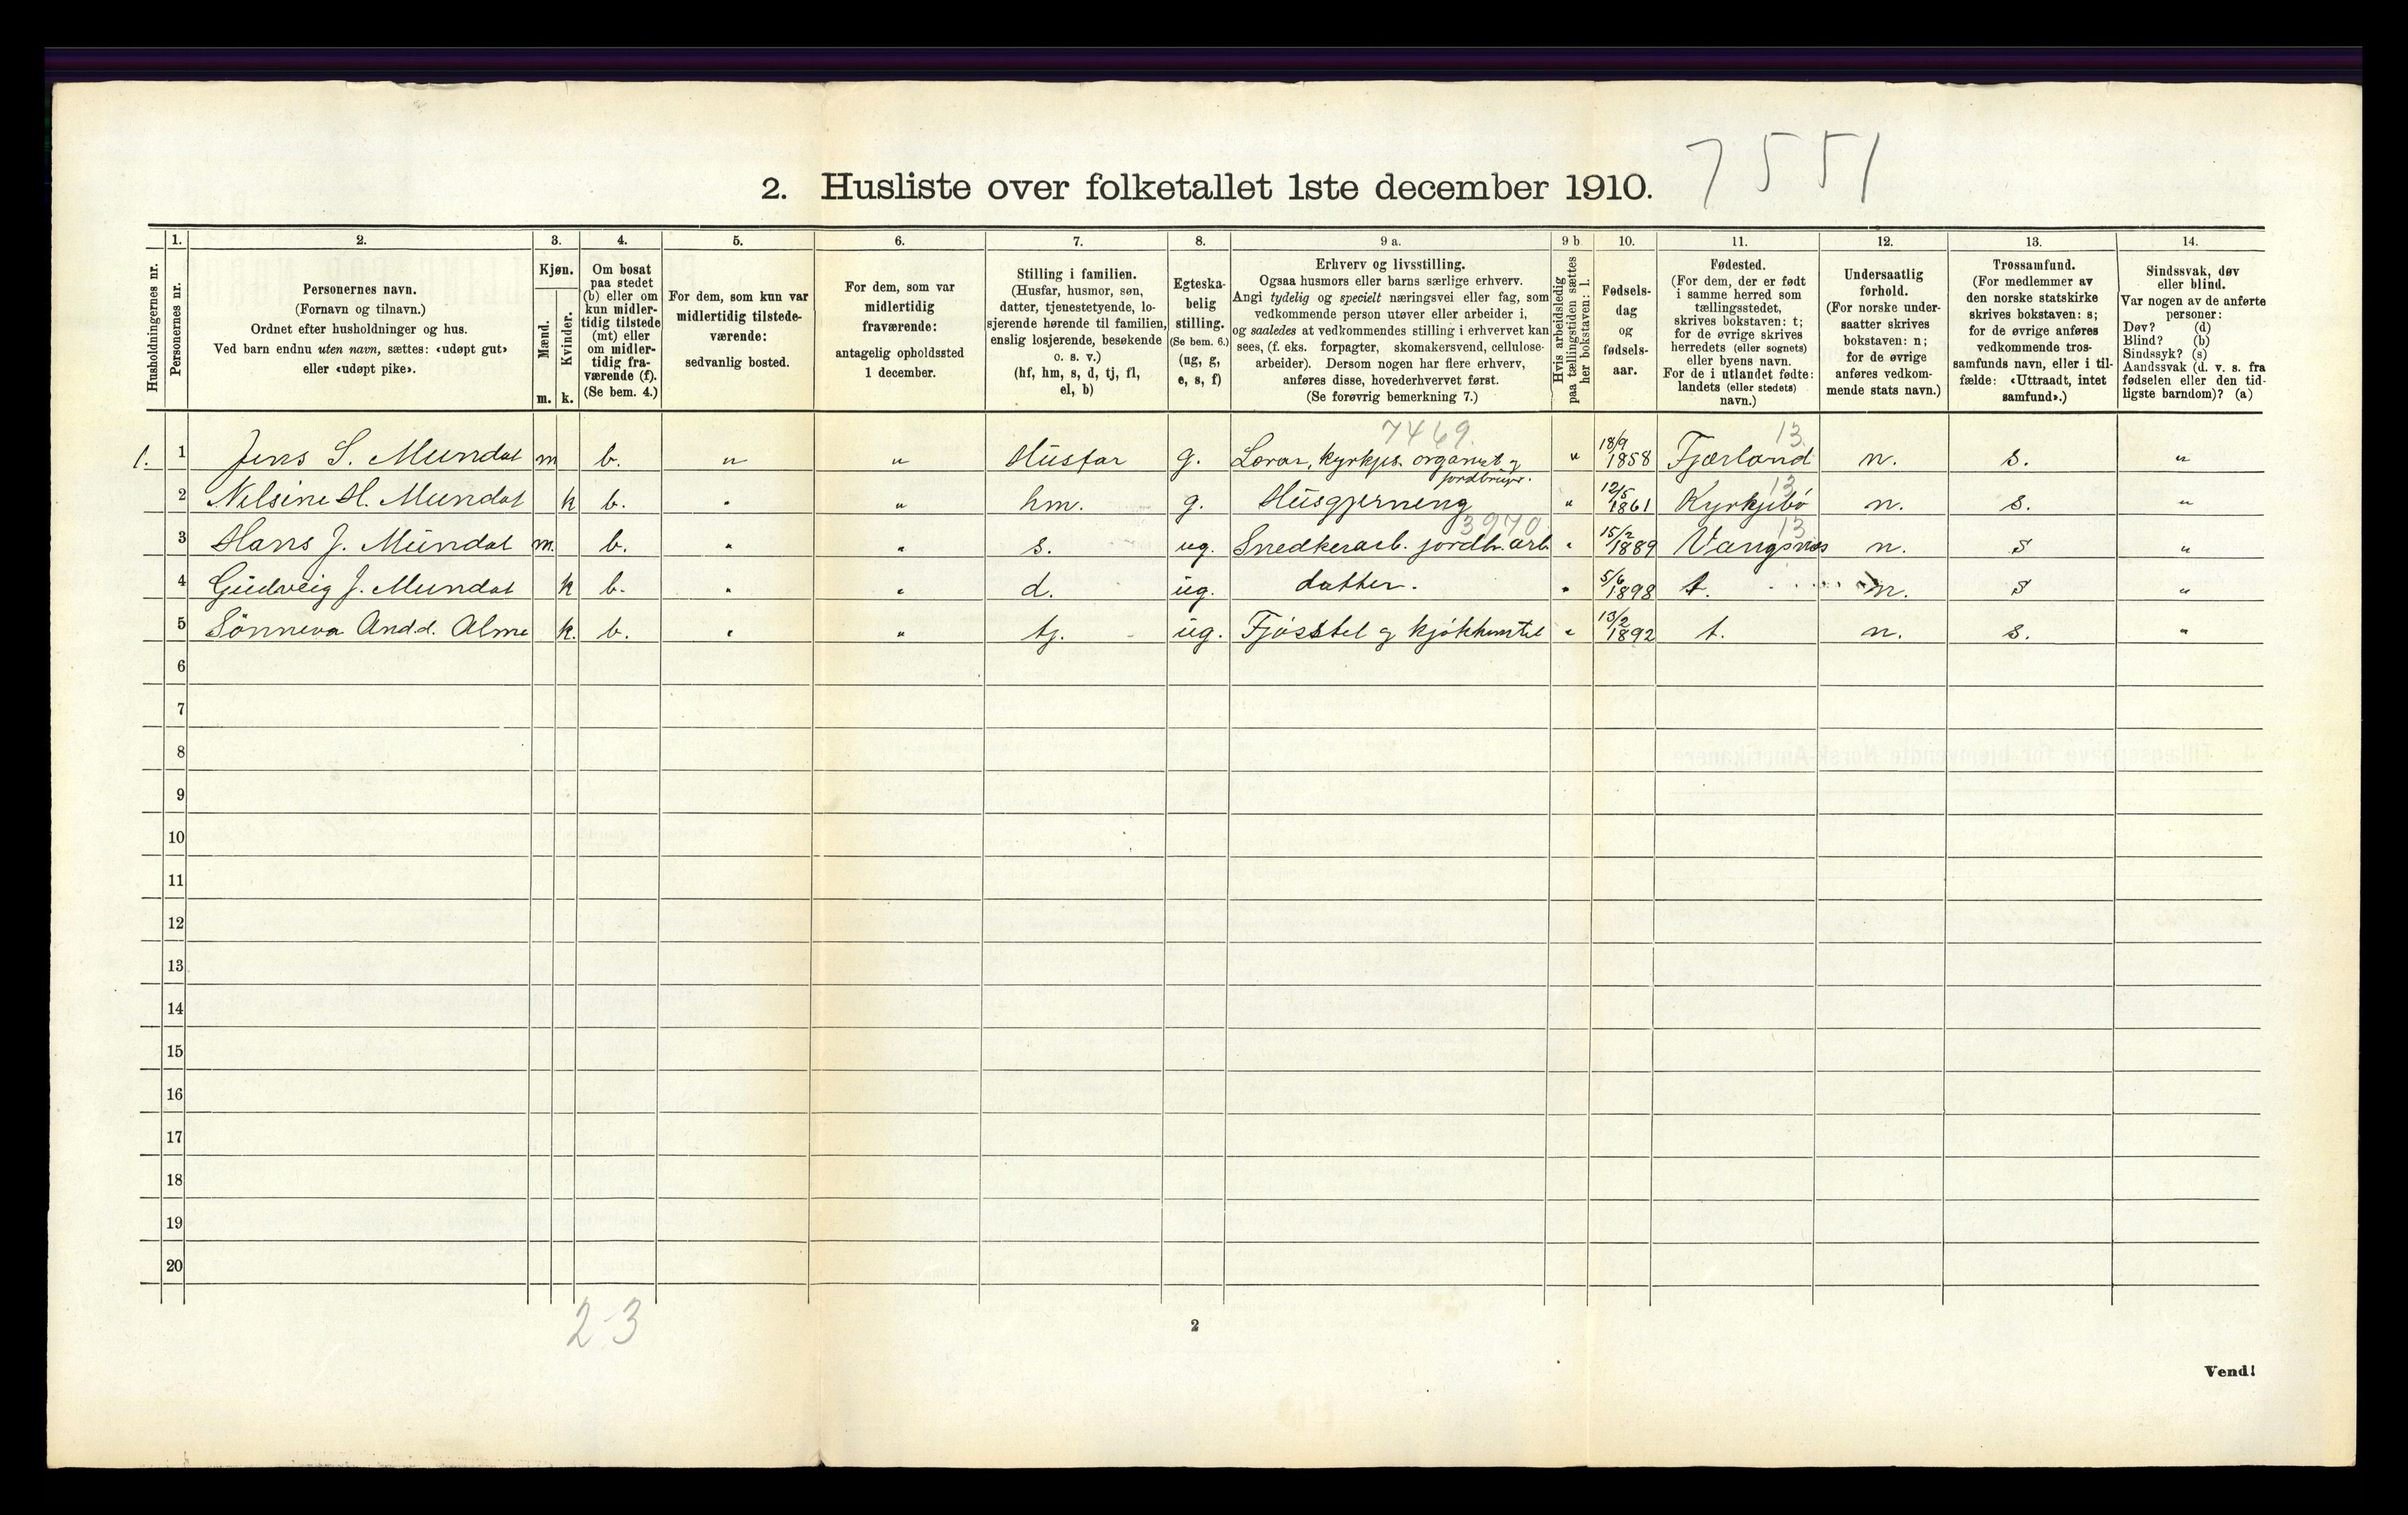 7551
2. Husliste over folketallet 1ste december 1910.
Husholdningernes nr.
1.
Personernes nr.
2.
Personernes navn.
(Fornavn og tilnavn.)
Ordnet efter husholdninger og hus.
Ved barn endnu uten navn, sættes: «udøpt gut»
eller «udøpt pike».
3.
Kjøn.
Mænd.
Kvinder.
m.
k.
4.
Om bosat
paa stedet
(b) eller om
kun midler-
tidig tilstede
(mt) eller
om midler-
tidig fra-
værende (f).
(Se bem. 4.)
5.
For dem, som kun var
midlertidig tilstede-
værende:
sedvanlig bosted.
6.
For dem, som var
midlertidig
fraværende:
antagelig opholdssted
1 december.
7.
Stilling i familien.
(Husfar, husmor, søn,
datter, tjenestetyende, lo-
sjerende hørende til familien,
enslig losjerende, besøkende
o. s. v.)
(hf, hm, s, d, tj, fl,
el, b)
8.
Egteska-
belig
stilling.
(Se bem. 6.)
(ug, g,
e, s, f)
9 a.
Erhverv og livsstilling.
Ogsaa husmors eller barns særlige erhverv.
Angi tydelig og specielt næringsvei eller fag, som
vedkommende person utøver eller arbeider i,
og saaledes at vedkommendes stilling i erhvervet kan
sees, (f. eks. forpagter, skomakersvend, cellulose-
arbeider). Dersom nogen har flere erhverv,
anføres disse, hovederhvervet først.
(Se forøvrig bemerkning 7.)
9 b
Hvis arbeidsledig
paa tællingstiden sættes
her bokstaven: l.
10.
Fødsels-
dag
og
fødsels-
aar.
11.
Fødested.
(For dem, der er født
i samme herred som
tællingsstedet,
skrives bokstaven: t;
for de øvrige skrives
herredets (eller sognets)
eller byens navn.
For de i utlandet fødte:
landets (eller stedets)
navn.)
12.
Undersaatlig
forhold.
(For norske under-
saatter skrives
bokstaven: n;
for de øvrige
anføres vedkom-
mende stats navn.)
13.
Trossamfund.
(For medlemmer av
den norske statskirke
skrives bokstaven: s;
for de øvrige anføres
vedkommende tros-
samfunds navn, eller i til-
fælde: «Uttraadt, intet
samfund».)
14.
Sindssvak, døv
eller blind.
Var nogen av de anførte
personer:
Døv? (d)
Blind? (b)
Sindssyk? (s)
Aandssvak (d. v. s. fra
fødselen eller den tid-
ligste barndom)? (a)
7469. 13.
1. 1 Jens S. Mundal m b. " " Husfar g. Lærar, kyrkjes. organist og jordbrukar. " 18/9 1858 Fjærland n. s. "
13
2 Nilsine H. Mundal k b. " " hm. g. Husgjerneng " 12/5 1861 Kyrkjebö n. s. "
3970 13
3 Hans J. Mundal m. b. " " s. ug. Snedkerarb. jordbr. arb. " 15/2 1889 Vangsnes n. s "
4 Gudveig J. Mundal k b. " " d. ug. datter. " 5/6 1898 t. n. s "
5 Sönneva And.d. Alme k. b. " " tj. ug. Fjösstel og kjökkenstel " 13/2 1892 t. n. s. "
6
7
8
9
10
11
12
13
14
15
16
17
18
19
20
2-3
2
Vend!